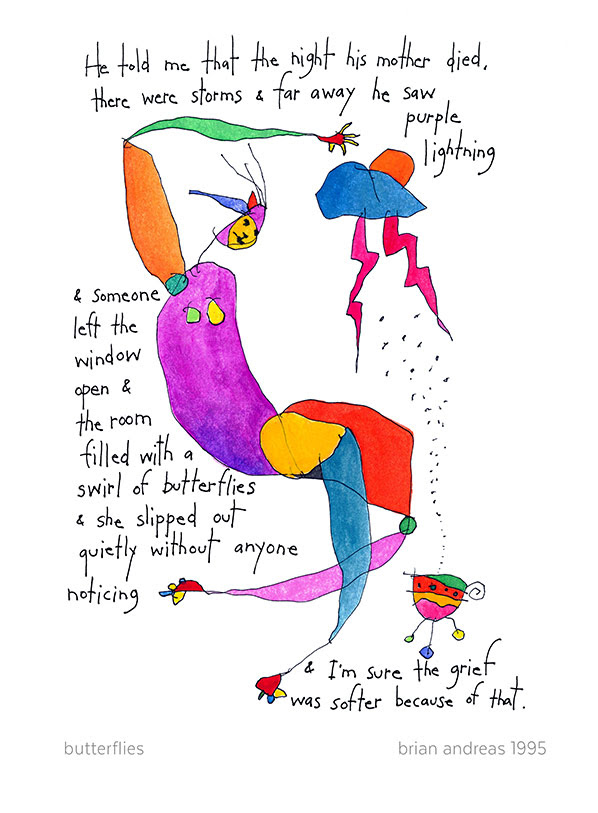 He told me that the night his mother died,
there were storms & far away he saw
purple
lightning
& someone
left the
window
open &
the room
filled with a
swirl of butterflies
& she slipped out
quietly without anyone
noticing
& I'm sure the grief
was softer because of that.
butterflies
brian andreas 1995